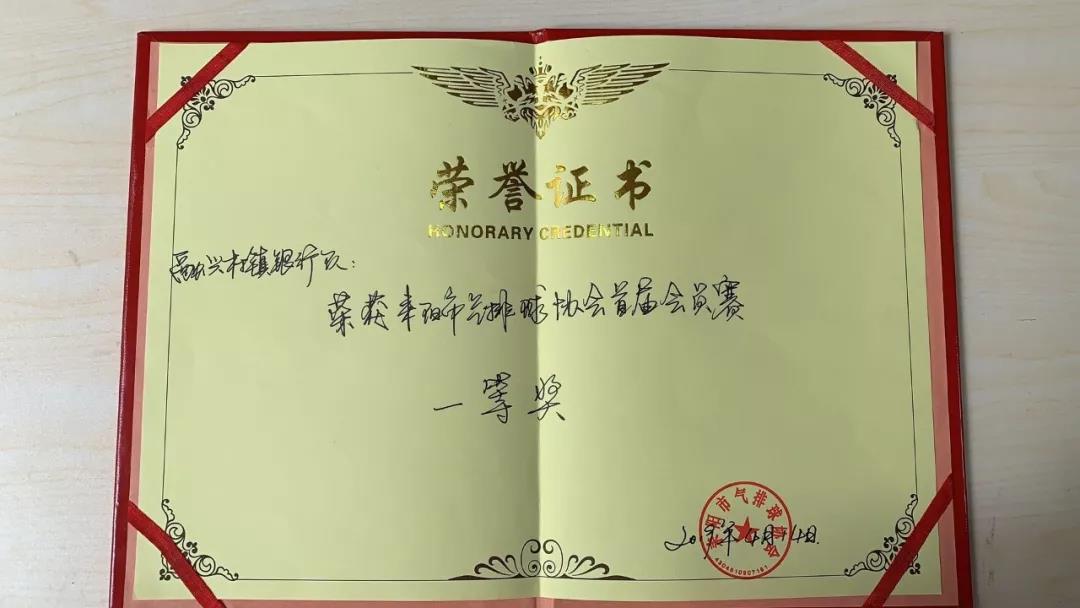 荣誉证书
HONORARY CREDENTIAL
融兴村镇银行队:
荣获耒阳市气排球协会首届会员赛
一等奖
耒阳市气排球协会
年4月14日.